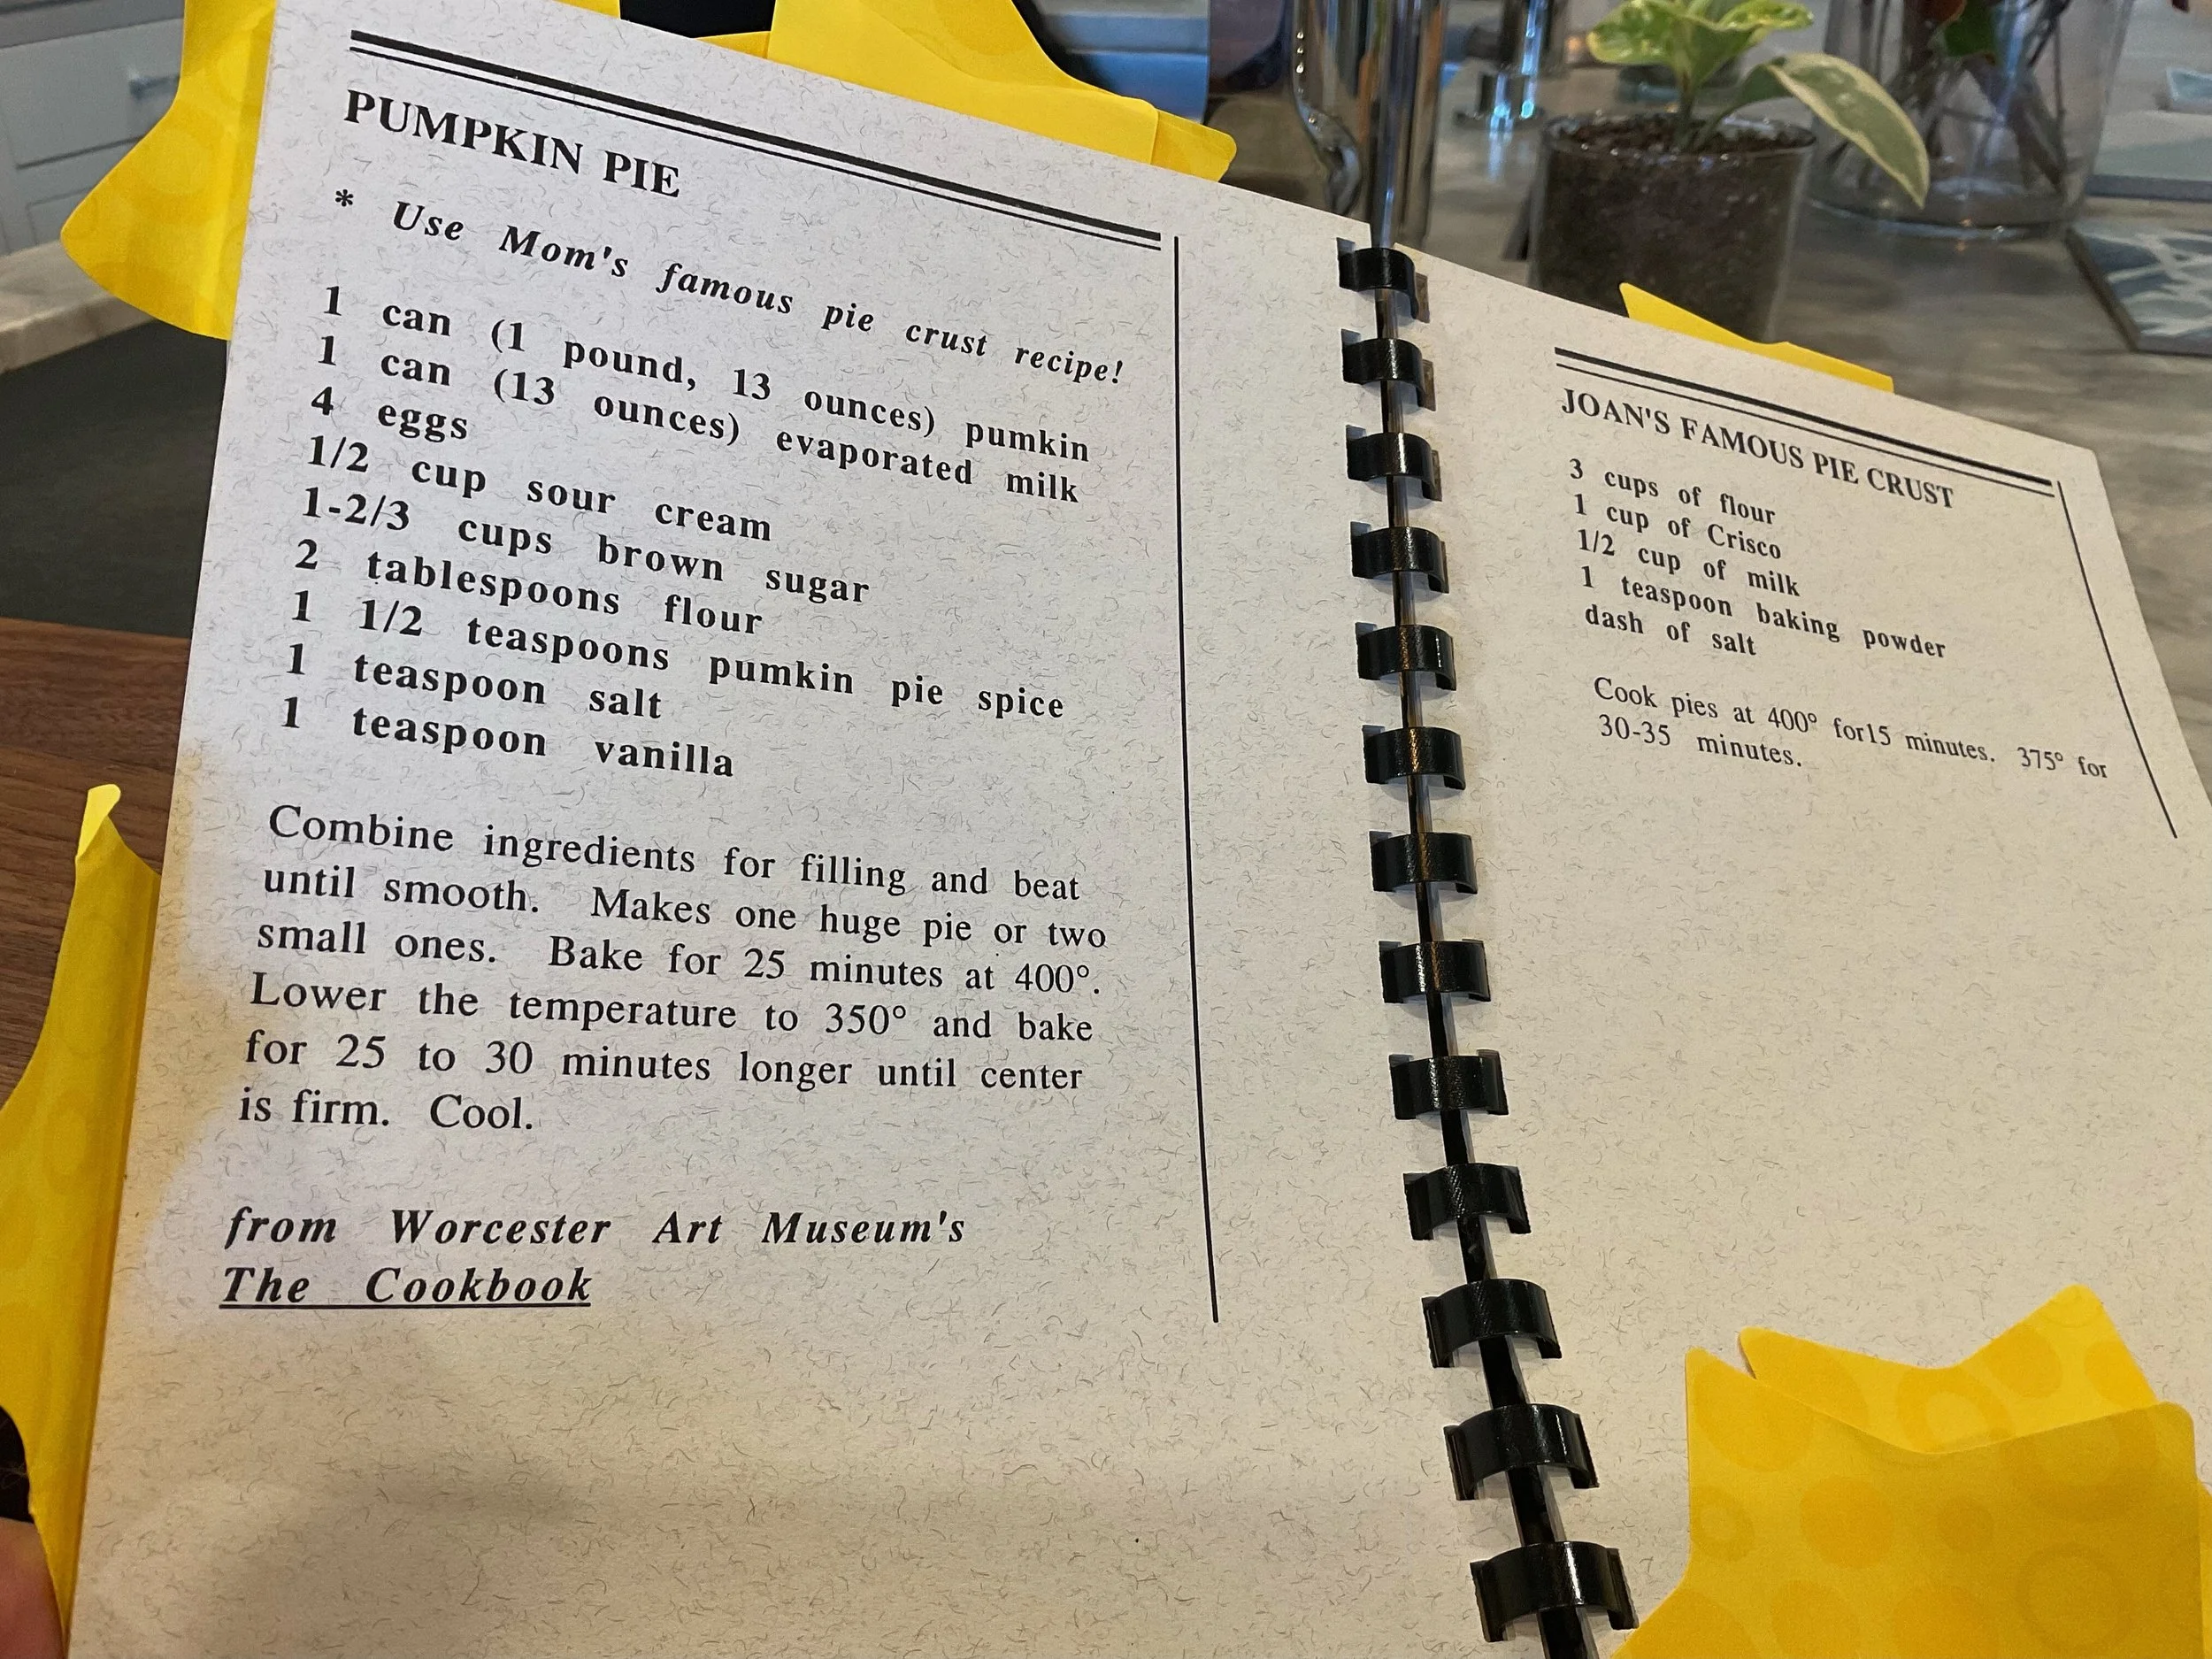 PUMPKIN PIE
* Use Mom's famous pie crust recipe!
1 can (1 pound, 13 ounces) pumkin
1 can (13 ounces) evaporated milk
4 eggs
1/2 cup sour cream
1-2/3 cups brown sugar
2 tablespoons flour
1 1/2 teaspoons pumkin pie spice
1 teaspoon salt
1 teaspoon vanilla
Combine ingredients for filling and beat
until smooth. Makes one huge pie or two
small ones. Bake for 25 minutes at 400°.
Lower the temperature to 350° and bake
for 25 to 30 minutes longer until center
is firm. Cool.
from Worcester Art Museum's
The Cookbook
JOAN'S FAMOUS PIE CRUST
3 cups of flour
1 cup of Crisco
1/2 cup of milk
1 teaspoon baking powder
dash of salt
Cook pies at 400° for15 minutes. 375° for
30-35 minutes.